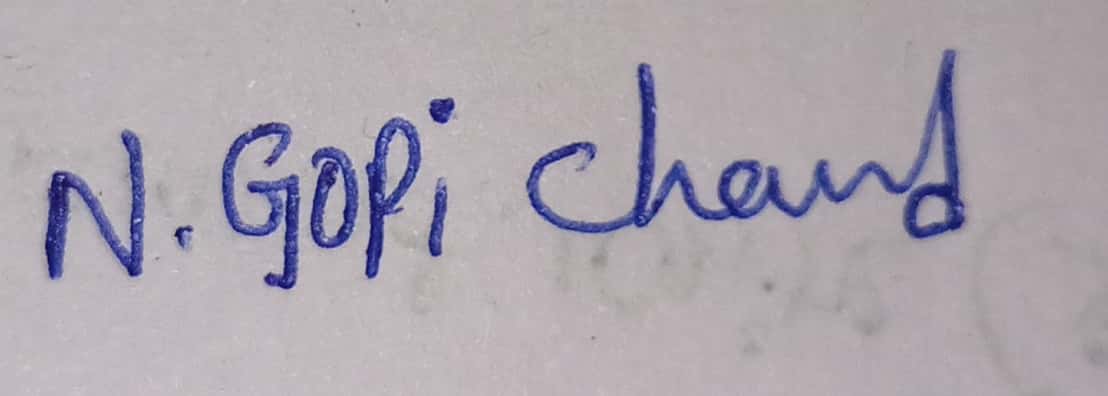 N. GOPi chand